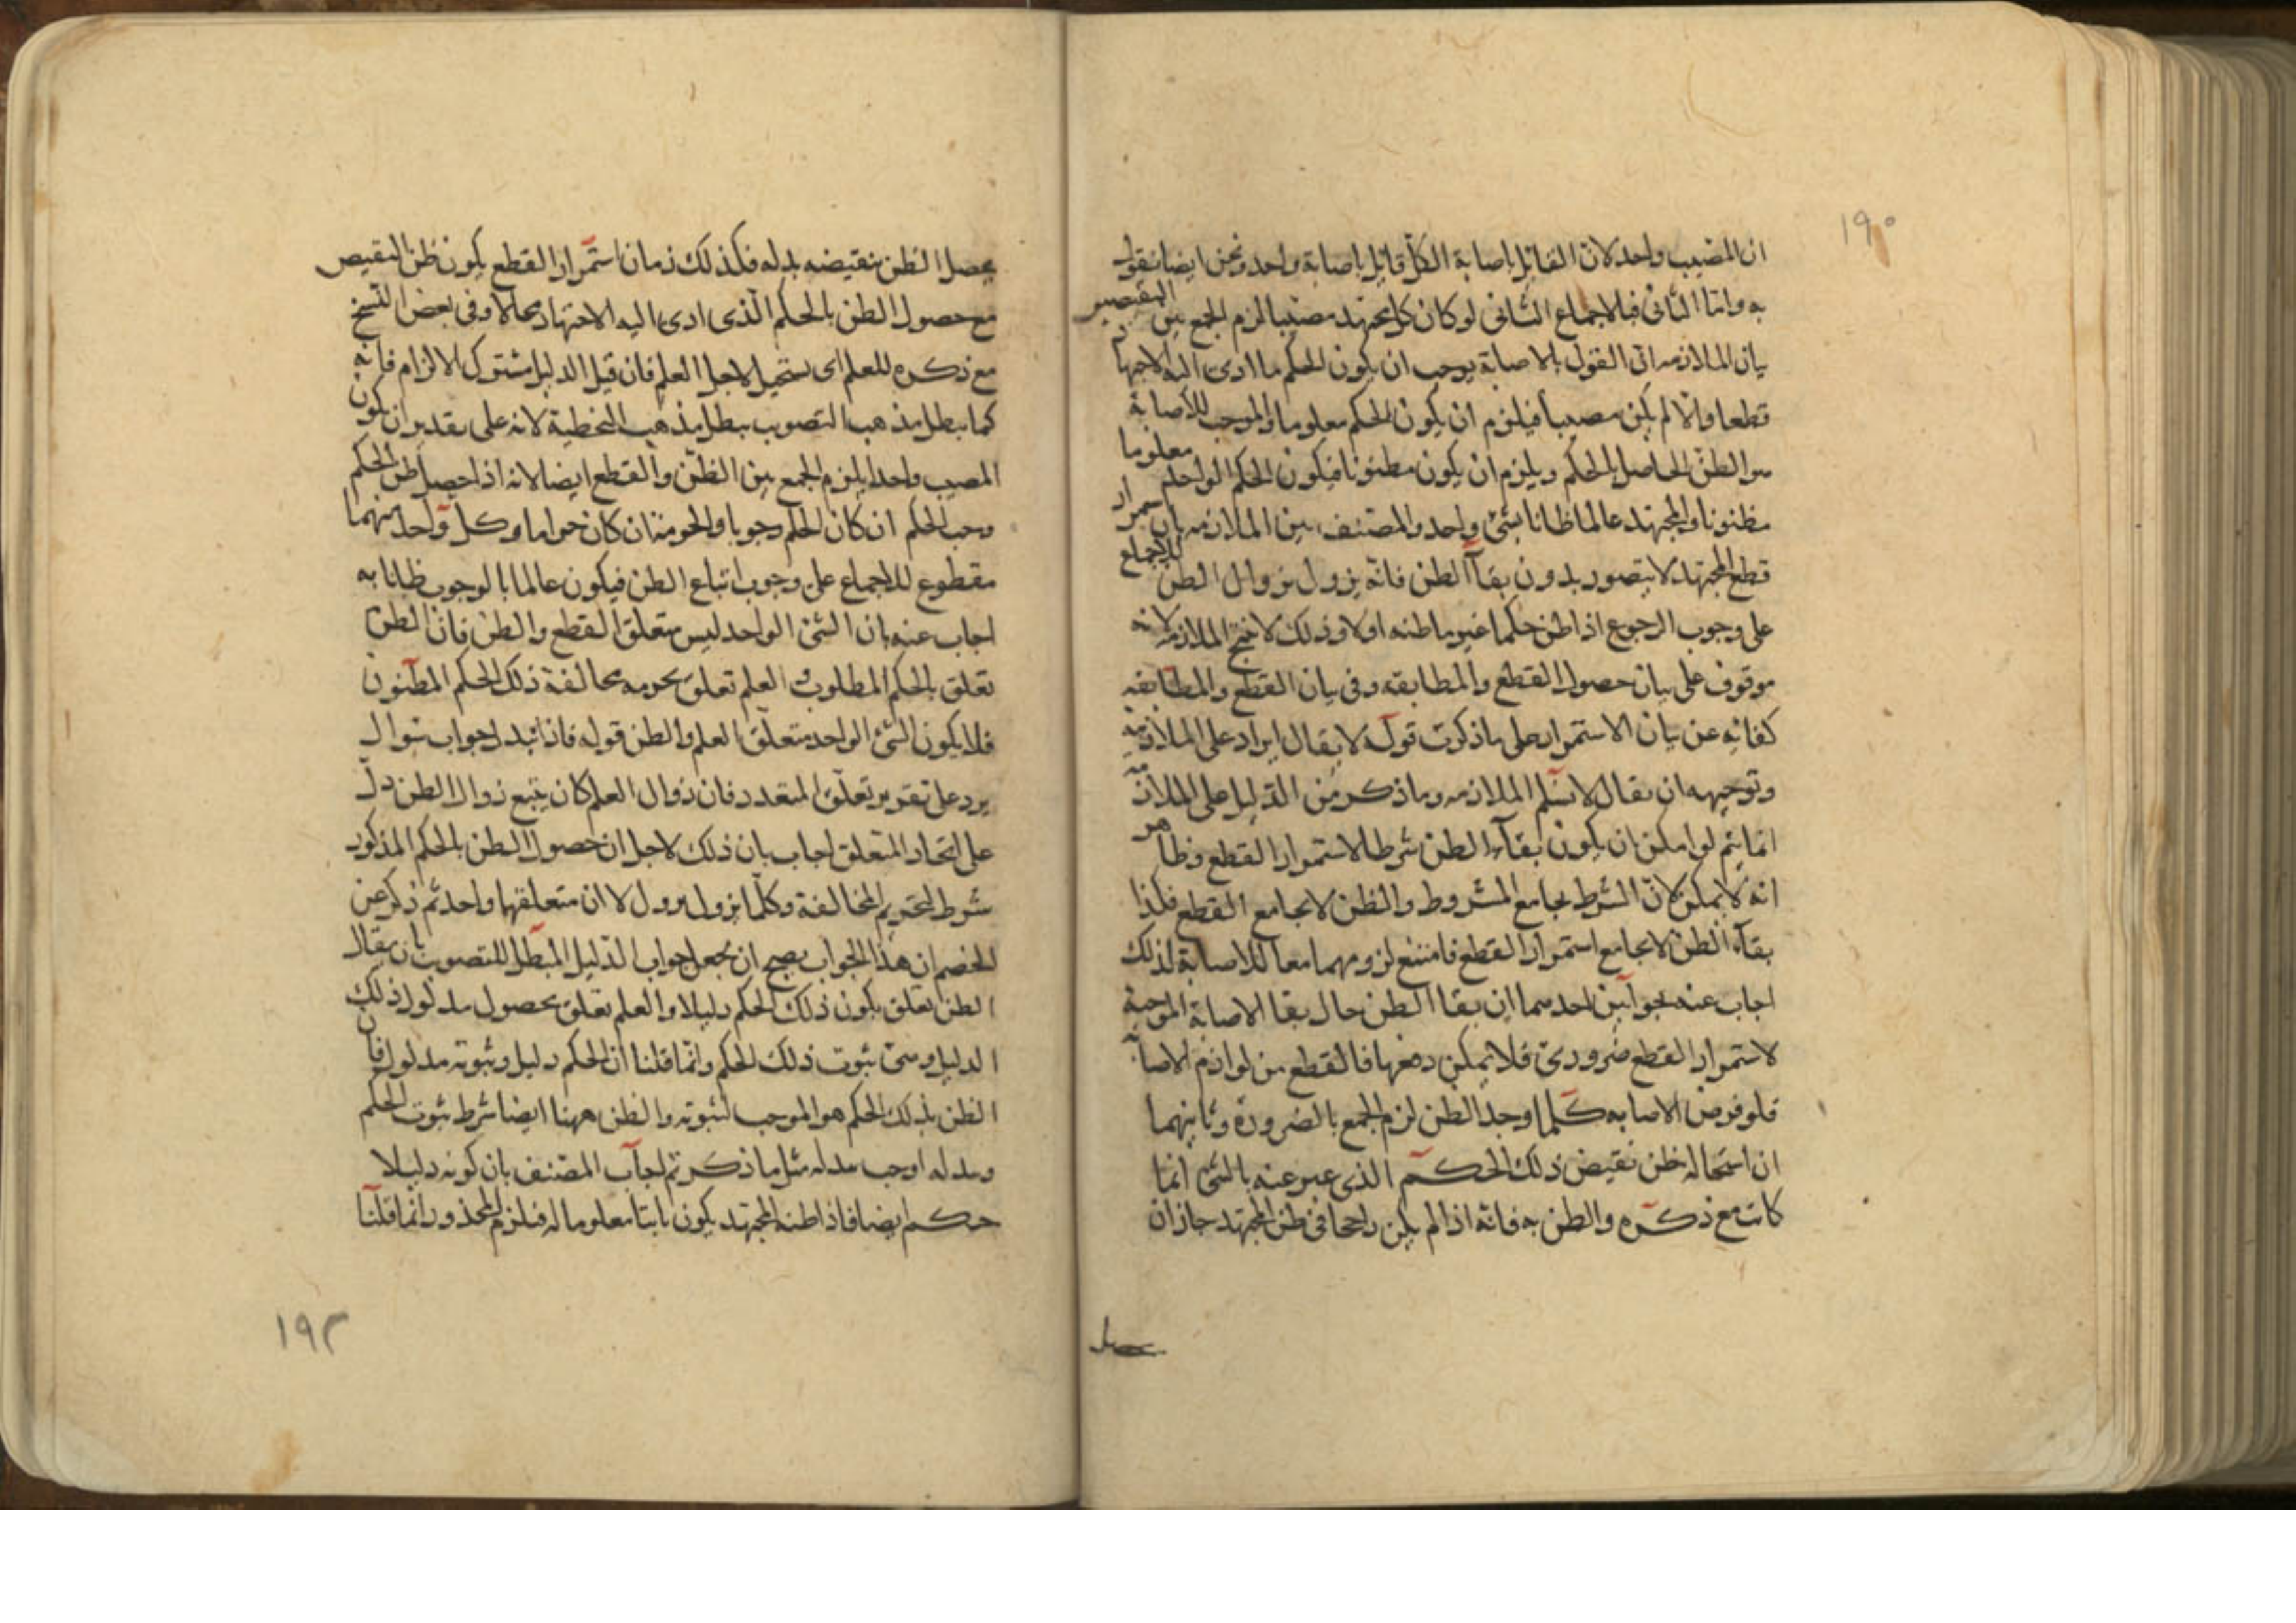 ١٩٠
ان المصيب واحد لان القائل باصابة الكل قايل باصابة واحد ونحن ايضا نقول
به واما الثانى فبالاجماع الثانى لو كان كل مجتهد مصيبا لزم الجمع بين النقيضين
بيان الملازمه ان القول بالاصابة يوجب ان يكون الحكم ما ادى اليه الاجتهاد
قطعا والا لم يكن مصيبا فيلزم ان يكون الحكم معلوما والموجب للاصابة
هو الظن الحاصل بالحكم ويلزم ان يكون مظنونا فيكون الحكم الواحد معلوما
مظنونا والمجتهد عالما ظانا بشئ واحد والمصنف بين الملازمه بان استمرار
قطع المجتهد لا يتصور بدون بقآ الظن فانه يزول بزوال الظن للاجماع
على وجوب الرجوع اذا ظن حكما غير ما ظنه اولا وذلك لا ينتج الملازمة لانه
موقوف على بيان حصول القطع والمطابقه وفى بيان القطع والمطابقه
كفاية عن بيان الاستمرار على ما ذكرت قوله لا يقال ايراد على الملازمة
وتوجيهه ان يقال لا نسلم الملازمه وما ذكر من الدليل على الملازمة
انما يتم لو امكن ان يكون بقآء الظن شرطا لاستمرار القطع وظاهر
انه لا يمكن لان الشرط يجامع المشروط والظن لا يجامع القطع فكذا
بقآء الظن لا يجامع استمرار القطع فامتنع لزومهما معا للاصابة لذلك
اجاب عنه بجوابين احدهما ان بقا الظن حال بقا الاصابة الموجبة
لاستمرار القطع ضرورى فلا يمكن دفعها فالقطع من لوازم الاصابة
فلو فرض الاصابه كلما وجد الظن لزم الجمع بالضرورة وثانيهما
ان استحاله ظن نقيض ذلك الحكم الذى عبر عنه بالشئ انما
كانت مع ذكره والظن به فانه اذا لم يكن راجحا فى ظن المجتهد جاز ان
يحصل الظن بنقيضه بدله فكذلك زمان استمرار القطع يكون ظن النقيض
مع حصول الظن بالحكم الذى ادى اليه الاجتهاد محالا وفى بعض النسخ
مع ذكره للعلم اى يستحيل لاجل العلم فان قيل الدليل مشترك الالزام فانه
كما يبطل مذهب التصويب يبطل مذهب التخطية لانه على تقدير ان يكون
المصيب واحدا يلزم الجمع بين الظن والقطع ايضا لانه اذا حصل ظن الحكم
وجب الحكم ان كان الحكم وجوبا والحرمة ان كان حراما وكل واحد منهما
مقطوع للاجماع على وجوب اتباع الظن فيكون عالما بالوجوب ظانا به
اجاب عنه بان الشئ الواحد ليس متعلق القطع والظن فان الظن
تعلق بالحكم المطلوب والعلم تعلق بحرمه مخالفة ذلك الحكم المظنون
فلا يكون الشئ الواحد متعلق العلم والظن قوله فاذا تبدل جواب سوال
يرد على تقدير تعلق المتعدد فان زوال العلم كان يتبع زوال الظن دل
على اتحاد المتعلق اجاب بان ذلك لاجل ان حصول الظن بالحكم المذكور
شرط لتحريم المخالفة وكلما يزول يزول لا ان متعلقهما واحد ثم ذكر عن
الخصم ان هذا الجواب يصح ان يجعل جواب الدليل المبطل للتصويب بان يقال
الظن تعلق بكون ذلك الحكم دليلا والعلم تعلق بحصول مدلول ذلك
الدليل وهى ثبوت ذلك الحكم وانما قلنا ان الحكم دليل وثبوته مدلول فان
الظن بذلك الحكم هو الموجب لثبوته والظن ههنا ايضا شرط ثبوت الحكم
وبدله اوجب بدله مثل ما ذكر ثم اجاب المصنف بان كونه دليلا
حكم ايضا فاذا ظنه المجتهد يكون ثابتا معلوما له فيلزم المحذور انما قلنا
١٩٢